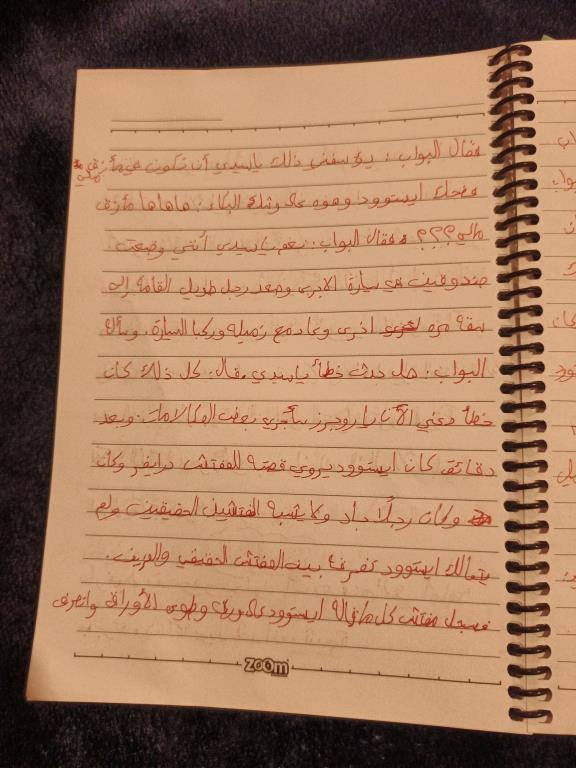 فقال البواب: يؤسفني ذلك ياسيدي أن تكون في مأزق
مالي
فضحك ايستوود وهوه على وشك البكاء: هاهاها مأزق
مالي؟؟؟ فقال البواب: نعم ياسيدي أنني وضعت
صندوقين في سيارة الاجرى وصعد رجل طويل القامة إلى
شقة مره اخرى وعاد مع زميله وركبا السيارة، وسأله
البواب: هل حدث خطأ ياسيدي، قال: كل ذلك كان
خطأ دعني الآن يا روجرز سأجري بعض المكالامات. وبعد
دقائق كان ايستوود يروي قصته للمفتش درايفر وكان
وكان رجلًا جاد ولا يشبه المفتشين الحقيقين ولم
يتمالك ايستوود تفرقة بين المفتش الحقيقي والمزيف.
فسجل مفتش كل ما قاله ايستوود وطوى الأوراق وانصرف
zoom